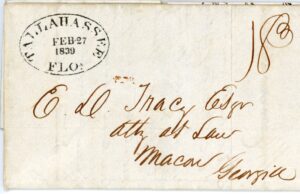 TALLAHASSEE
FEB 27
1839
FLO.
18¾
E D. Tracy Esqr
atty at Law
Macon
Georgia